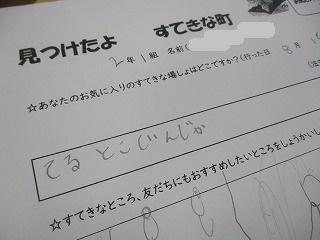 見つけたよ すてきな町
2年1組 名前(
☆あなたのお気に入りのすてきな場しょはどこですか?(行った日 8月1
てるとこじんじか
☆すてきなところ、友だちにもおすすめしたいところをしょうかいし